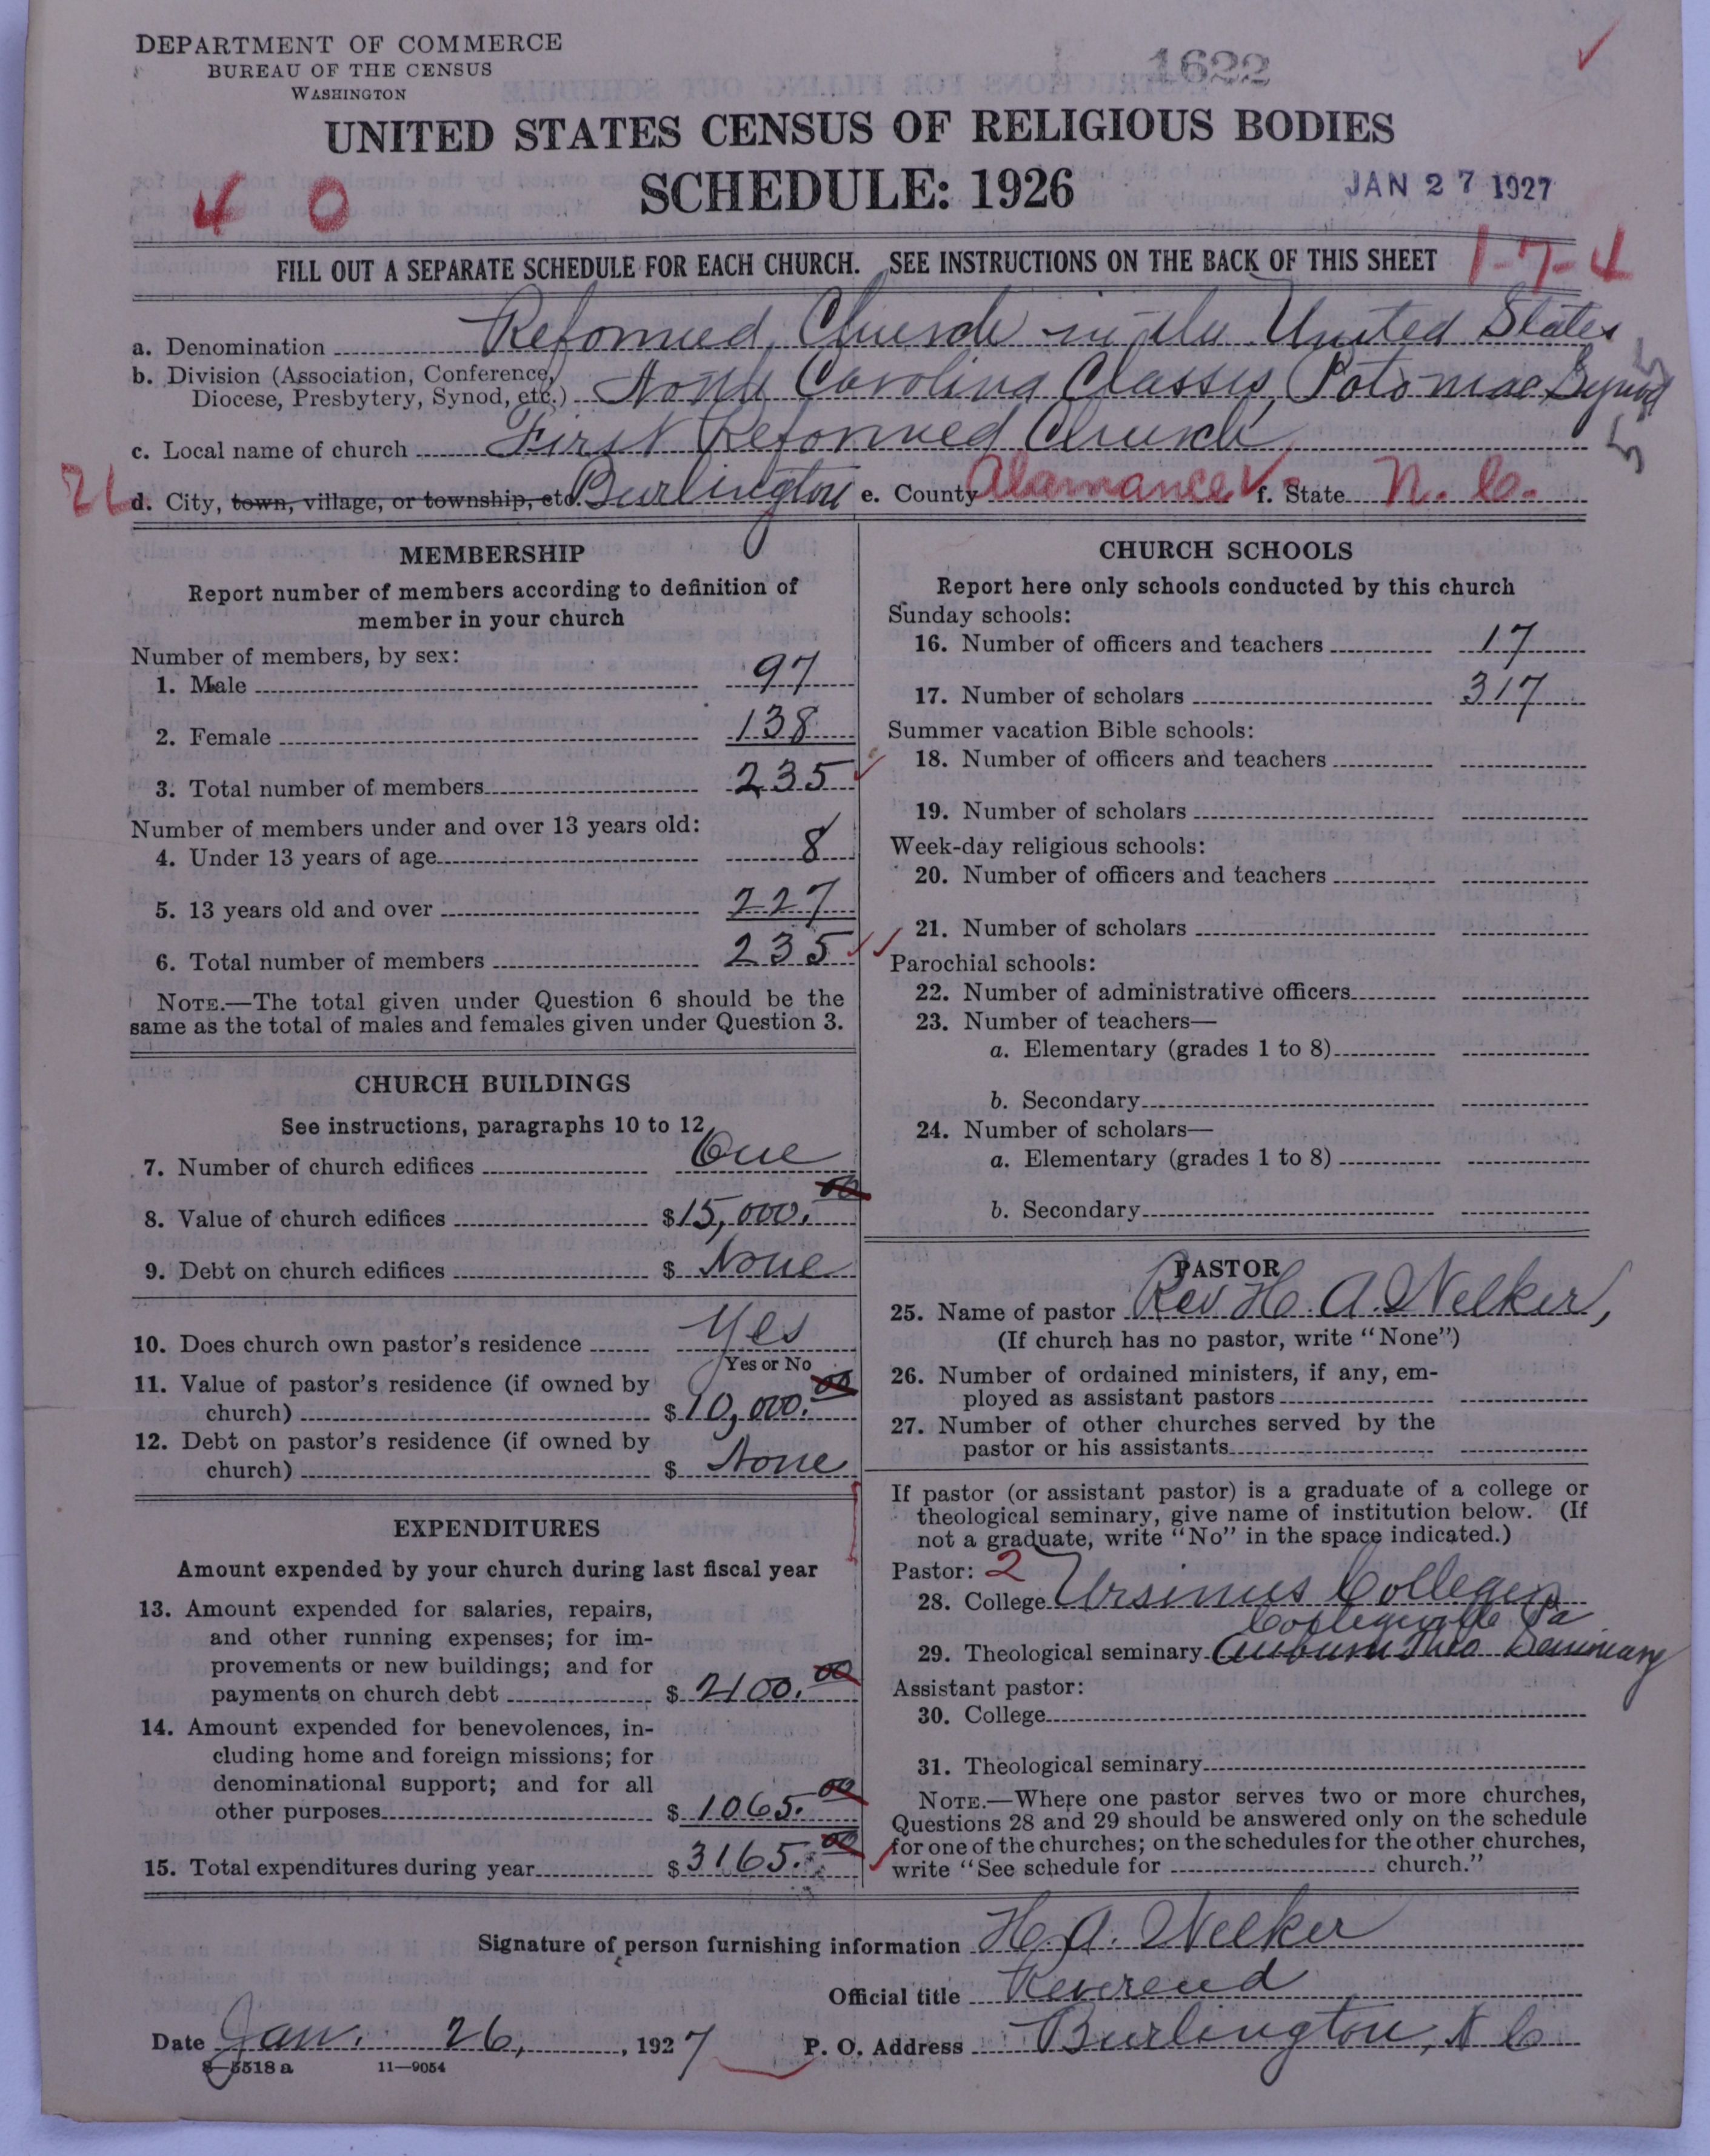 DEPARTMENT OF COMMERCE
BUREAU OF THE CENSUS
WASHINGTON
1622
UNITED STATES CENSUS OF RELIGIOUS BODIES
SCHEDULE: 1926
JAN 27 1927
4 0
FILL OUT A SEPARATE SCHEDULE FOR EACH CHURCH. SEE INSTRUCTIONS ON THE BACK OF THIS SHEET
1-7-4
a. Denomination Reformed Church in the United States
b. Division (Association, Conference,
Diocese, Presbytery, Synod, etc.) North Carolina Classis, Potomac Synod
c. Local name of church First Reformed Church
d. City, town, village, or township, etc. Burlington e. County Alamance f. State N. C.
MEMBERSHIP
Report number of members according to definition of
member in your church
Number of members, by sex:
1. Male 97
2. Female 138
3. Total number of members 235
Number of members under and over 13 years old:
4. Under 13 years of age 8
5. 13 years old and over 227
6. Total number of members 235
NOTE.—The total given under Question 6 should be the
same as the total of males and females given under Question 3.
CHURCH BUILDINGS
See instructions, paragraphs 10 to 12
7. Number of church edifices One
8. Value of church edifices $15,000.00
9. Debt on church edifices $ None
10. Does church own pastor's residence Yes
Yes or No
11. Value of pastor's residence (if owned by
church) $10,000.00
12. Debt on pastor's residence (if owned by
church) $ None
EXPENDITURES
Amount expended by your church during last fiscal year
13. Amount expended for salaries, repairs,
and other running expenses; for im-
provements or new buildings; and for
payments on church debt $ 2100.00
14. Amount expended for benevolences, in-
cluding home and foreign missions; for
denominational support; and for all
other purposes $ 1065.00
15. Total expenditures during year $3165.00
CHURCH SCHOOLS
Report here only schools conducted by this church
Sunday schools:
16. Number of officers and teachers 17
17. Number of scholars 317
Summer vacation Bible schools:
18. Number of officers and teachers
19. Number of scholars
Week-day religious schools:
20. Number of officers and teachers
21. Number of scholars
Parochial schools:
22. Number of administrative officers
23. Number of teachers—
a. Elementary (grades 1 to 8)
b. Secondary
24. Number of scholars—
a. Elementary (grades 1 to 8)
b. Secondary
PASTOR
25. Name of pastor Rev. H. A. Welker,
(If church has no pastor, write "None")
26. Number of ordained ministers, if any, em-
ployed as assistant pastors
27. Number of other churches served by the
pastor or his assistants
If pastor (or assistant pastor) is a graduate of a college or
theological seminary, give name of institution below. (If
not a graduate, write "No" in the space indicated.)
Pastor: 2
28. College Ursinus College
Collegeville Pa
29. Theological seminary Auburn Theo Seminary
Assistant pastor:
30. College
31. Theological seminary
NOTE.—Where one pastor serves two or more churches,
Questions 28 and 29 should be answered only on the schedule
for one of the churches; on the schedules for the other churches,
write "See schedule for church."
Signature of person furnishing information H. A. Welker
Official title Reverend
Date Jan. 26, 1927 P. O. Address Burlington, N C
8—5518 a 11—9054